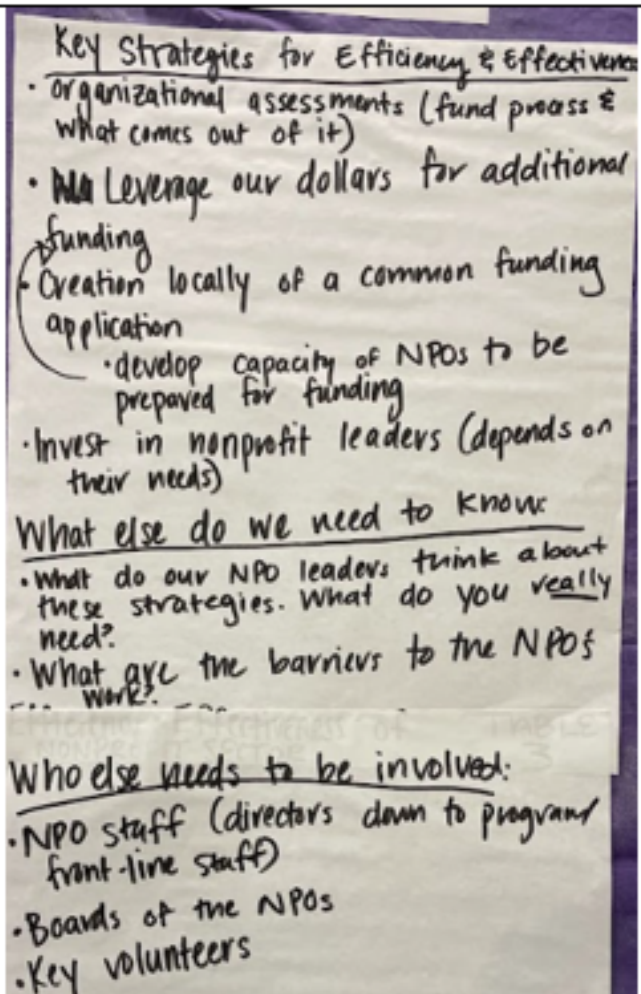 Key Strategies for Efficiency & Effectiveness
• Organizational assessments (fund process &
what comes out of it)
• Leverage our dollars for additional
funding
• Creation locally of a common funding
application
• develop capacity of NPOs to be
prepared for funding
• Invest in nonprofit leaders (depends on
their needs)
What else do we need to know:
• What do our NPO leaders think about
these strategies. What do you really
need?
• What are the barriers to the NPOs
work?
TABLE
3
Who else needs to be involved:
• NPO staff (directors down to program/
front-line staff)
• Boards of the NPOs
• Key volunteers